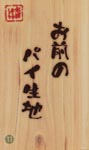 お前の
パイ生地